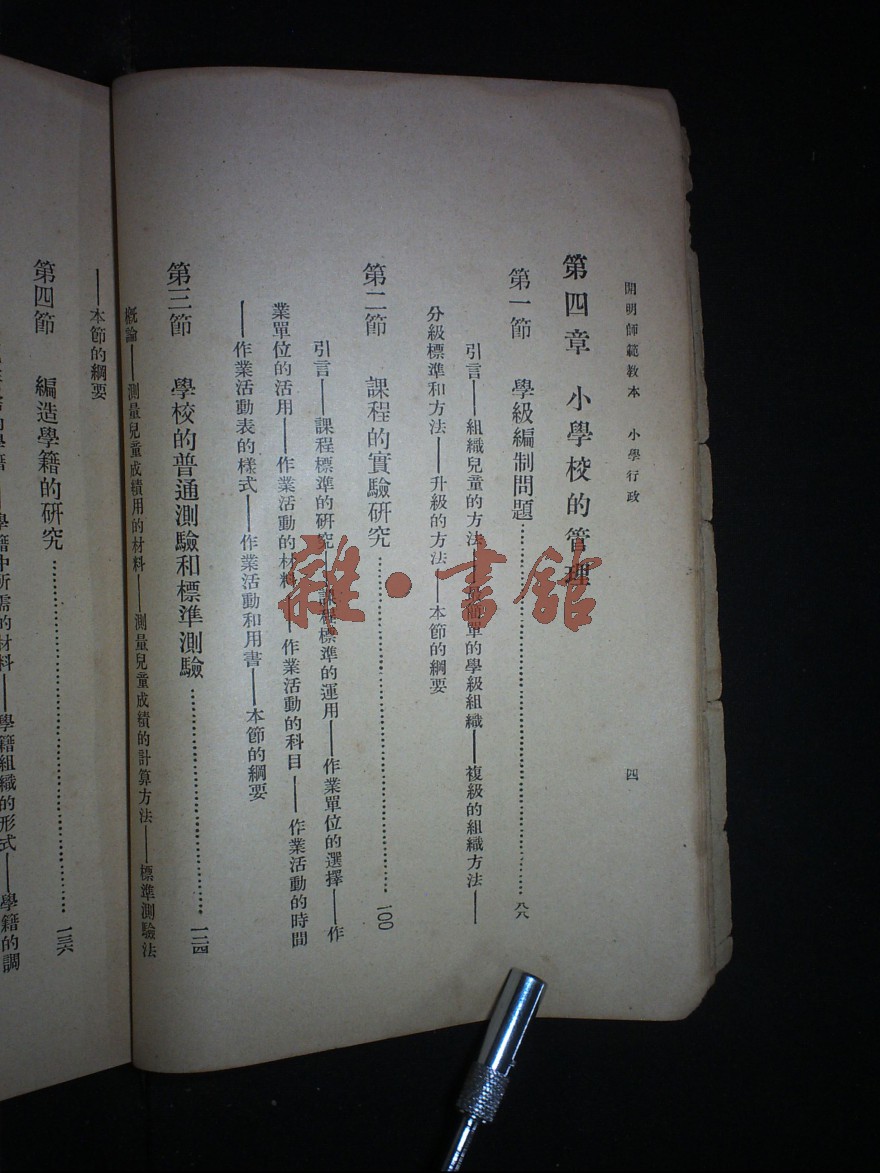 開明師範教本 小學行政 四
第四章 小學校的管理
第一節 學級編制問題……八八
引言——組織兒童的方法——最簡單的學級組織——複級的組織方法——
分級標準和方法——升級的方法——本節的綱要
第二節 課程的實驗研究……一〇〇
引言——課程標準的研究——課程標準的運用——作業單位的選擇——作
業單位的活用——作業活動的材料——作業活動的科目——作業活動的時間
——作業活動表的樣式——作業活動和用書——本節的綱要
第三節 學校的普通測驗和標準測驗……一二四
概論——測量兒童成績用的材料——測量兒童成績的計算方法——標準測驗法
——本節的綱要
第四節 編造學籍的研究……一三六
學籍——學籍中所需的材料——學籍組織的形式——學籍的調
雜·書館